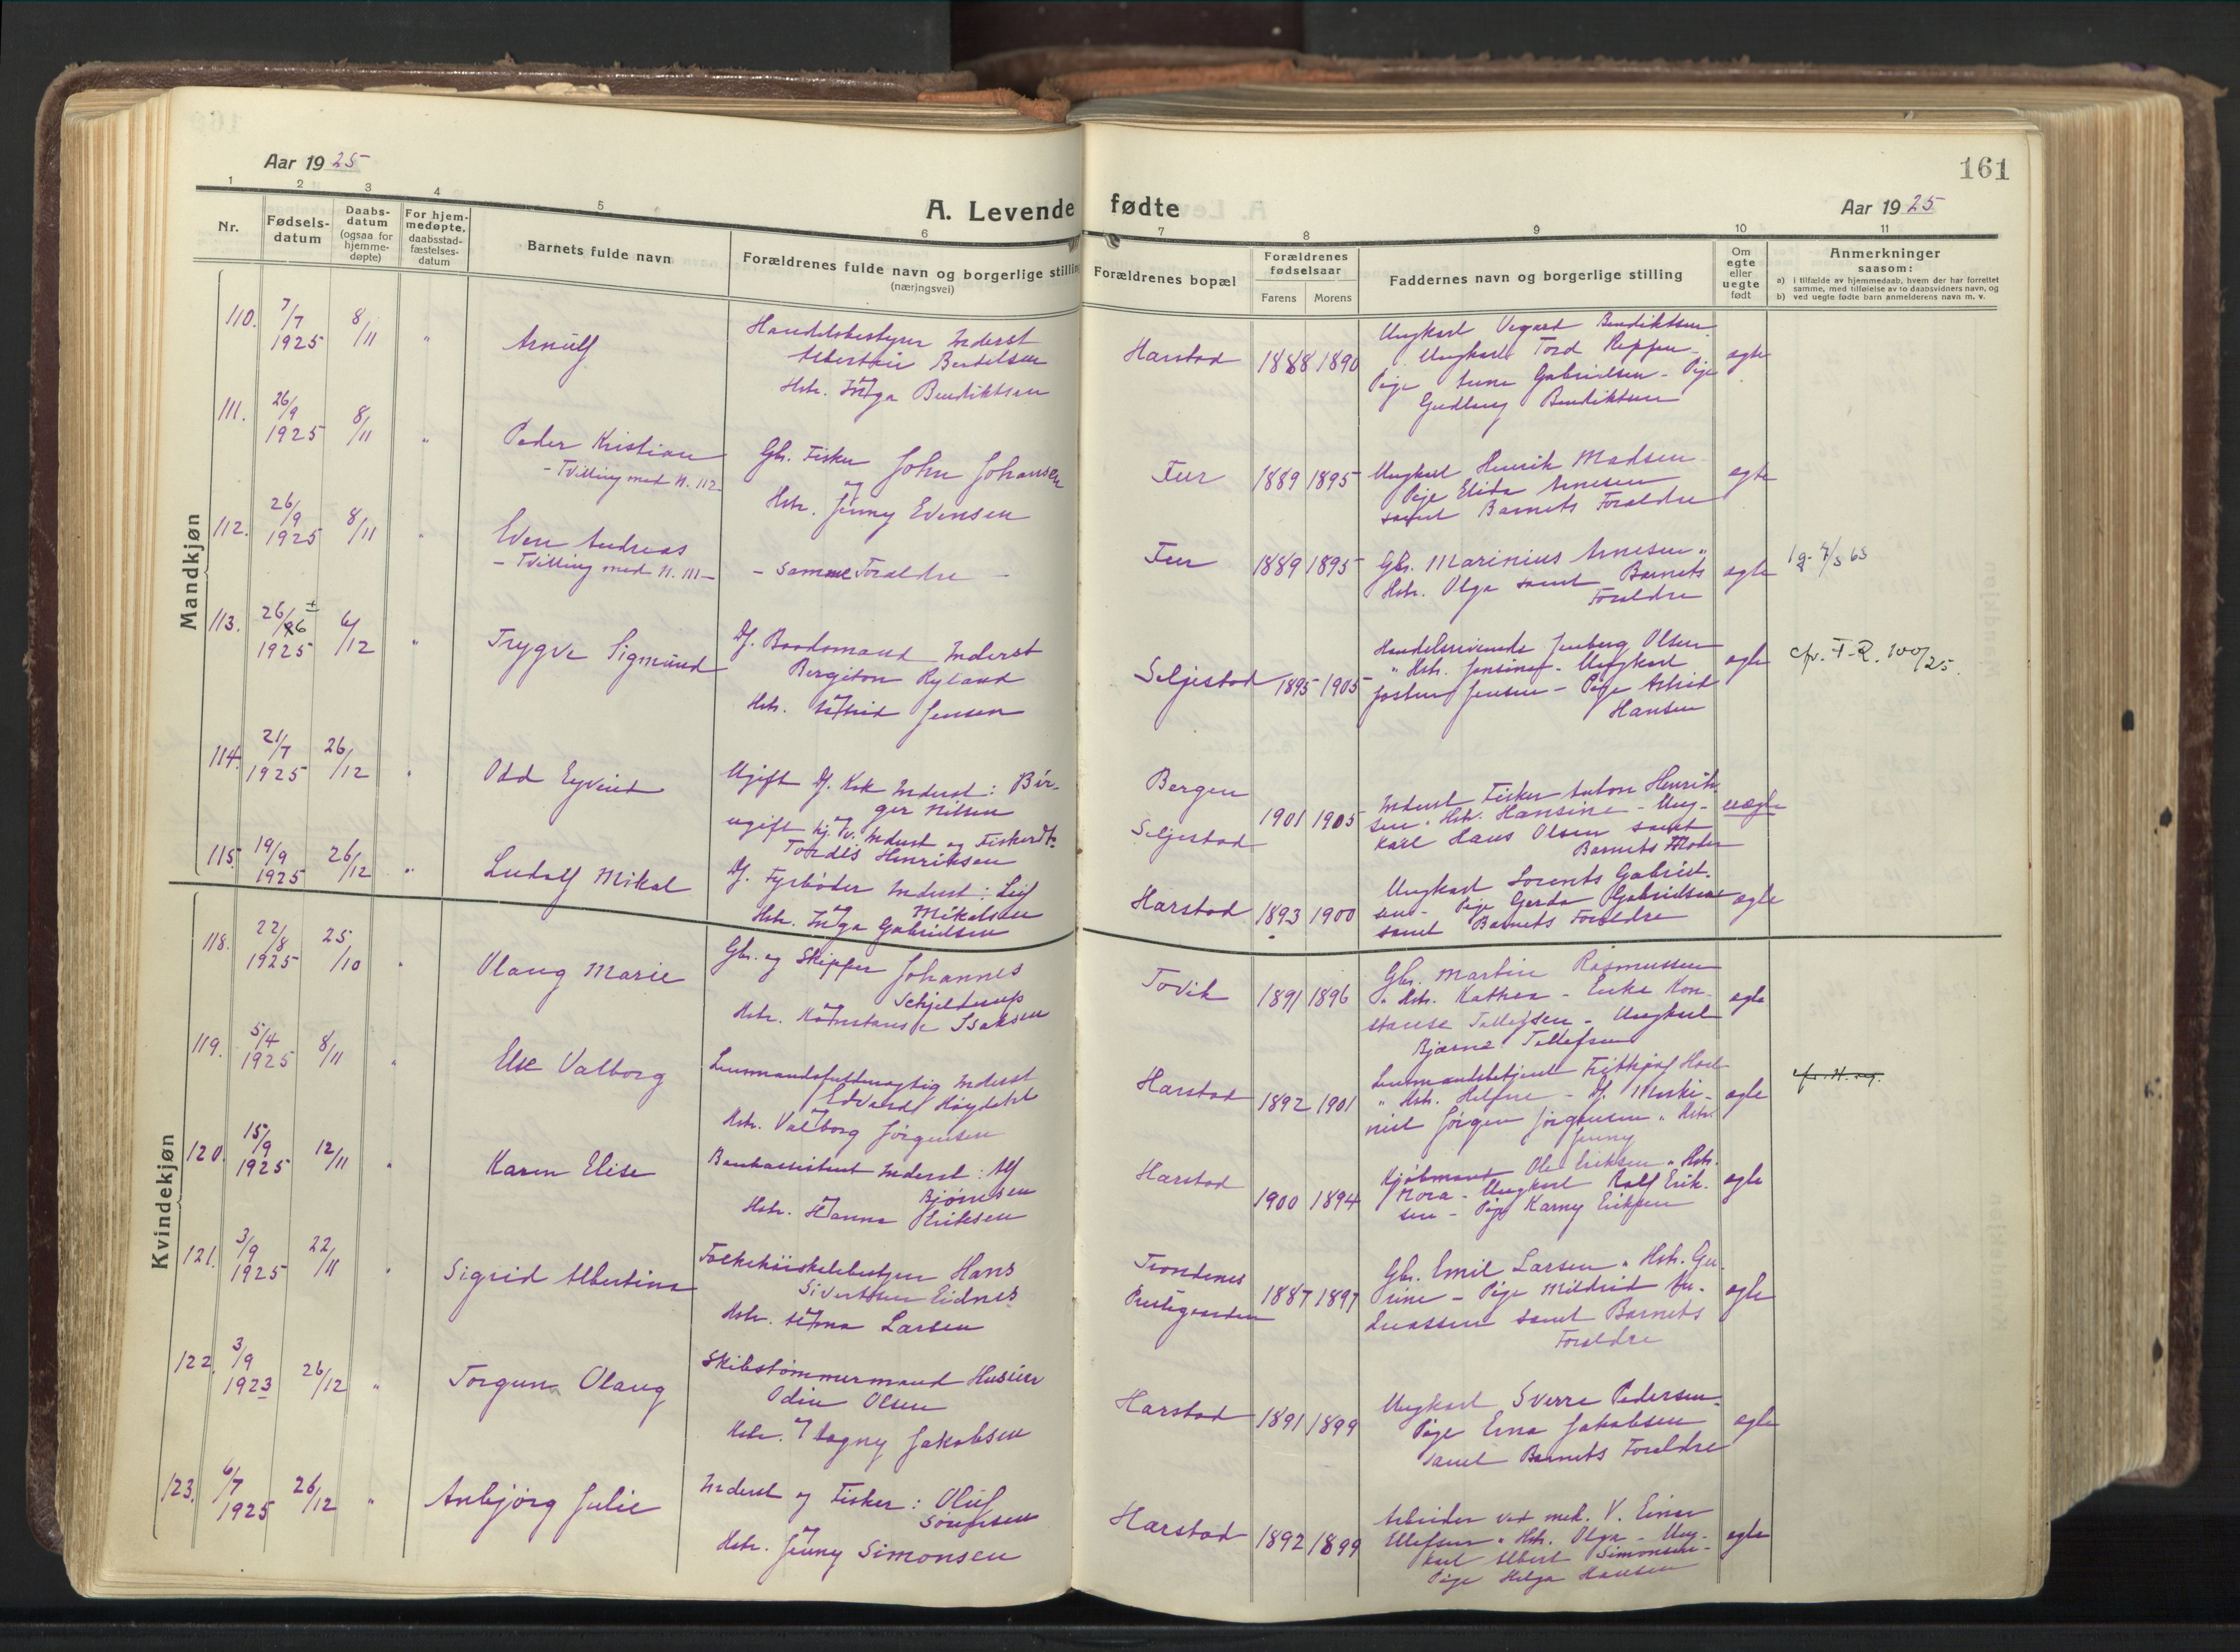 161
Aar 1925
Aar 1925
A. Levende fødte
1 2 3 4 5 6 7 8 9 10 11
Nr.
Fødsels-
datum
Daabs-
datum
(ogsaa for
hjemme-
døpte)
For hjem-
medøpte,
daabsstad-
fæstelses-
datum
Barnets fulde navn
Forældrenes fulde navn og borgerlige stilling
(næringsvei)
Forældrenes bopæl
Forældrenes
fødselsaar
Farens Morens
Faddernes navn og borgerlige stilling
Om
egte
eller
uegte
født
Anmerkninger
saasom:
a) i tilfælde av hjemmedaab, hvem der har forrettet
samme, med tilføielse av to daabsvidners navn, og
b) ved uegte fødte barn anmelderens navn m. v.
Mandkjøn
110. 7/7 1925 8/11 "
Arnulf
Handelsbestyrer Inderst
Bendiksen
og
Hstr. Inga Bendiktsen
Harstad 1888 1890
Ungkarl Vegard Bendiktsen
Ungkarl Tord Reppen -
Pige Anna Gabrielsen - Pige
Gudlaug Bendiktsen
ægte
111. 26/9 1925 8/11 "
Peder Kristian
- Tvilling med N. 112
Gbr. Fisker John Johansen
og
Hstr. Jenny Evensen
1889 1895
Ungkarl Henrik Madsen
Pige Elida Arnesen
samt Barnets Forældre
ægte
112. 26/9 1925 8/11 "
Even Andreas
- Tvilling med N. 111 -
- Samme Forældre -
1889 1895
Gbr. Marinius Arnesen "
Hstr. Olga samt Barnets
Forældre
ægte
113. 26/6 1925 6/12 "
Trygve Sigmund
Df. Baadsmand Inderst
Bergiton Ryland
og
Hstr. Astrid Jensen
Seljestad 1895 1905
Handelsreisende Jenberg Olsen
" Hstr. Jensine - Ungkarl
Jostein Jensen - Pige Astrid
Hansen
ægte
cfr. T-R. 100/25.
114. 21/7 1925 26/12 "
Odd Eyvind
Ugift Df. Kok Inderst: Bir-
ger Nilsen
og
ugift Hj. v. Inderst og Fiskerdt.
Tordis Henriksen
Bergen
Seljestad
1901 1905
Inderst Fisker Anton Henrik-
sen " Hstr. Hansine - Ung-
karl Hans Olsen samt
Barnets Moder
uægte
115. 19/9 1925 26/12 "
Ludolf Mikal
Df. Fyrbøder Inderst: Leif
Mikalsen
og
Hstr. Inga Gabrielsen
Harstad 1893 1900
Ungkarl Lorents Gabriel-
sen - Pige Gerda Gabrielsen
samt Barnets Forældre
ægte
Kvindekjøn
118. 22/8 1925 25/10 "
Olaug Marie
Gbr. og Skipper Johannes
Schjelderup
og
Hstr. Konstanse Isaksen
Tovik 1891 1896
Gbr. Martin Rasmussen
" Hstr. Kathea - Enke Kon-
stanse Tollefsen - Ungkarl
Bjarne Tollefsen
ægte
119. 5/4 1925 8/11 "
Else Valborg
Lensmandsfuldmægtig Inderst
Edvard Høydahl
og
Hstr. Valborg Jørgensen
Harstad 1892 1901
Lensmandsbetjent Frithjof
" Hstr. - Df. Maski-
nist Jørgen Jørgensen " Hstr.
Jenny
ægte
120. 15/9 1925 12/11 "
Karen Elise
Bankassistent Inderst: Alf
Bjørnsen
og
Hstr. Hanna Eriksen
Harstad 1900 1894
Kjøbmand Ole Eriksen " Hstr.
Nora - Ungkarl Ralf Erik-
sen - Pige Karny Eriksen
ægte
121. 3/9 1925 22/11 "
Sigrid Albertina
Folkehøiskolebestyrer Hans
Sivertsen Eidnes
og
Hstr. Anna Larsen
Trondenes
Prestegaarden
1887 1897
Gbr. Emil Larsen " Hstr. Gu-
rine - Pige Mildrid An-
dreassen samt Barnets
Forældre
ægte
122. 3/9 1923 26/12 "
Torgun Olaug
Skibstømmermand Huseier
Odin Olsen
og
Hstr. Dagny Jakobsen
Harstad 1891 1899
Ungkarl Sverre Pedersen -
Pige Erna Jakobsen
samt Barnets Forældre
ægte
123. 6/7 1925 26/12 "
Anbjørg Julie
Inderst og Fisker: Oluf
Sørensen
og
Hstr. Jenny Simonsen
Harstad 1892 1899
Arbeider ved mek. V. Einar
Ellefsen " Hstr. Olga - Ung-
karl Albert Simonsen -
Pige Helga Hansen
ægte